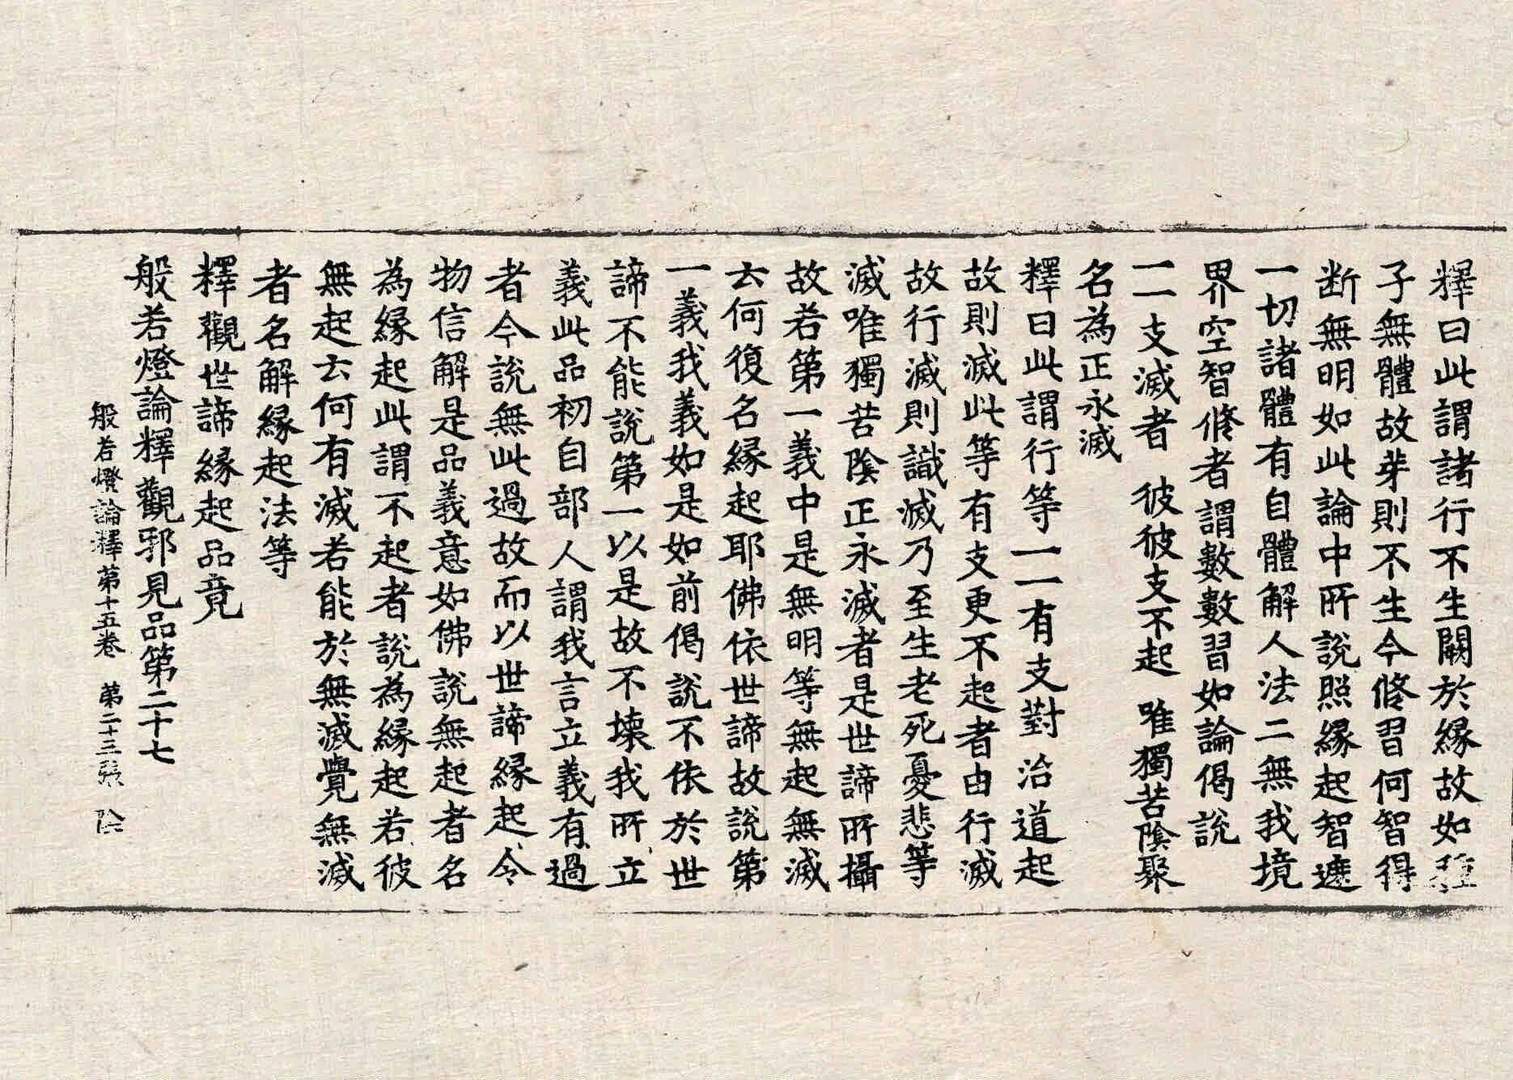 釋曰此謂諸行不生闕於緣故如種
子無體故芽則不生今修習何智得
断無明如此論中所說照緣起智遮
一切諸體有自體解人法二無我境
界空智修者謂數數習如論偈說
一一支滅者 彼彼支不起 唯獨苦陰聚
名為正永滅
釋曰此謂行等一一有支對治道起
故則滅此等有支更不起者由行滅
故行滅則識滅乃至生老死憂悲等
滅唯獨苦陰正永滅者是世諦所攝
故若第一義中是無明等無起無滅
云何復名緣起耶佛依世諦故說第
一義我義如是如前偈說不依於世
諦不能說第一以是故不壞我所立
義此品初自部人謂我言立義有過
者今說無此過故而以世諦緣起令
物信解是品義意如佛說無起者名
為緣起此謂不起者說為緣起若彼
無起云何有滅若能於無滅覺無滅
者名解緣起法等
釋觀世諦緣起品竟
般若燈論釋觀邪見品第二十七
般若燈論釋第十五卷 第二十三張 陰